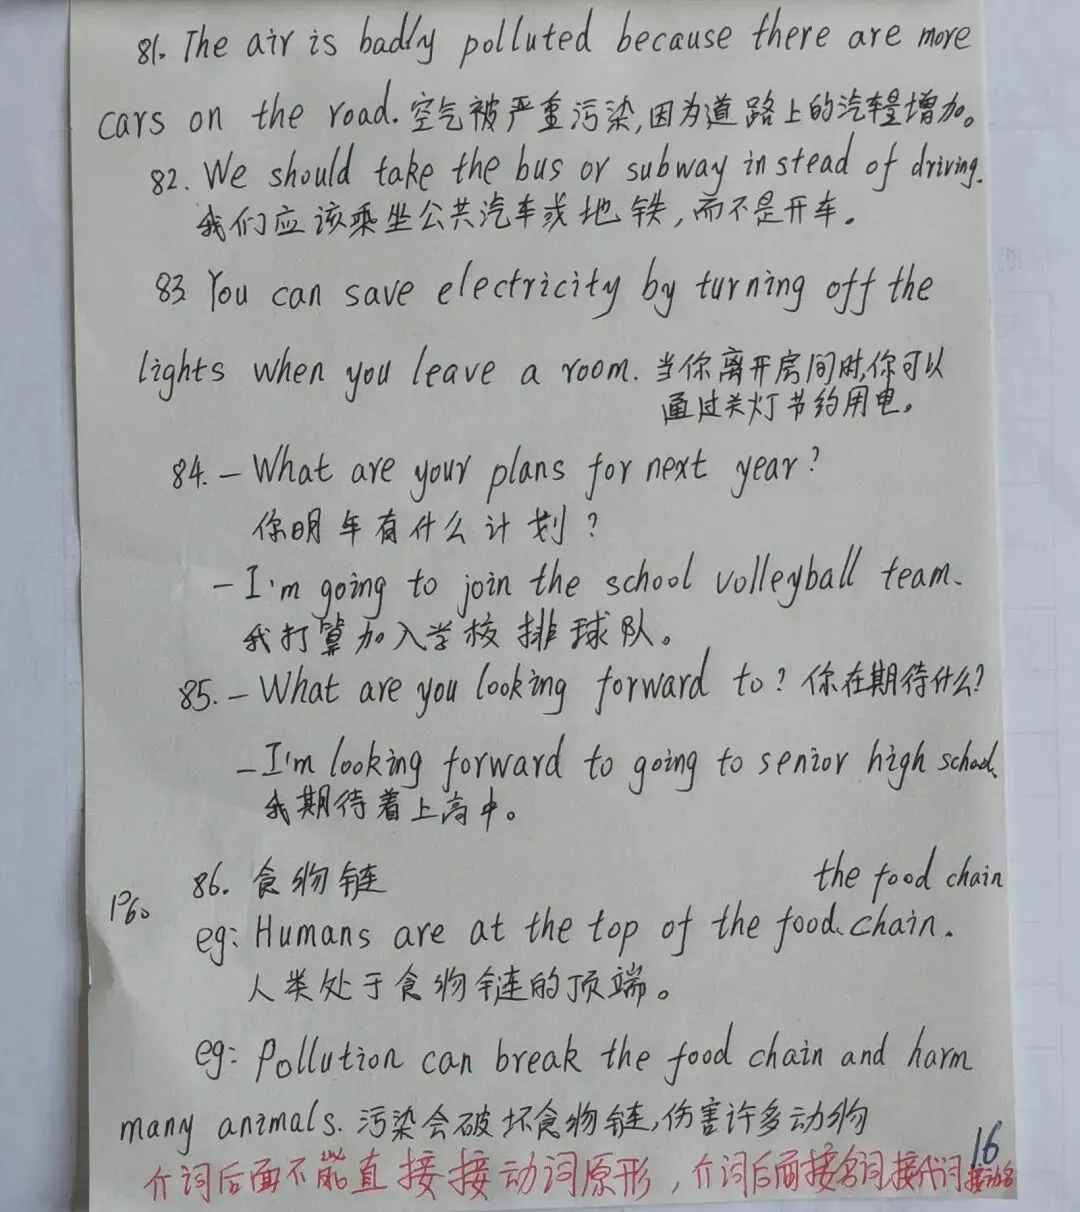 81. The air is badly polluted because there are more
cars on the road. 空气被严重污染,因为道路上的汽车量增加。
82. We should take the bus or subway in stead of driving.
我们应该乘坐公共汽车或地铁,而不是开车。
83 You can save electricity by turning off the
lights when you leave a room. 当你离开房间时,你可以
通过关灯节约用电。
84. – What are your plans for next year?
你明年有什么计划?
– I'm going to join the school volleyball team.
我打算加入学校排球队。
85. – What are you looking forward to? 你在期待什么?
– I'm looking forward to going to senior high school.
我期待着上高中。
86. 食物链 the food chain
P60
eg: Humans are at the top of the food chain.
人类处于食物链的顶端。
eg: Pollution can break the food chain and harm
many animals. 污染会破坏食物链,伤害许多动物
16
介词后面不能直接接动词原形,介词后面接名词接代词接动名